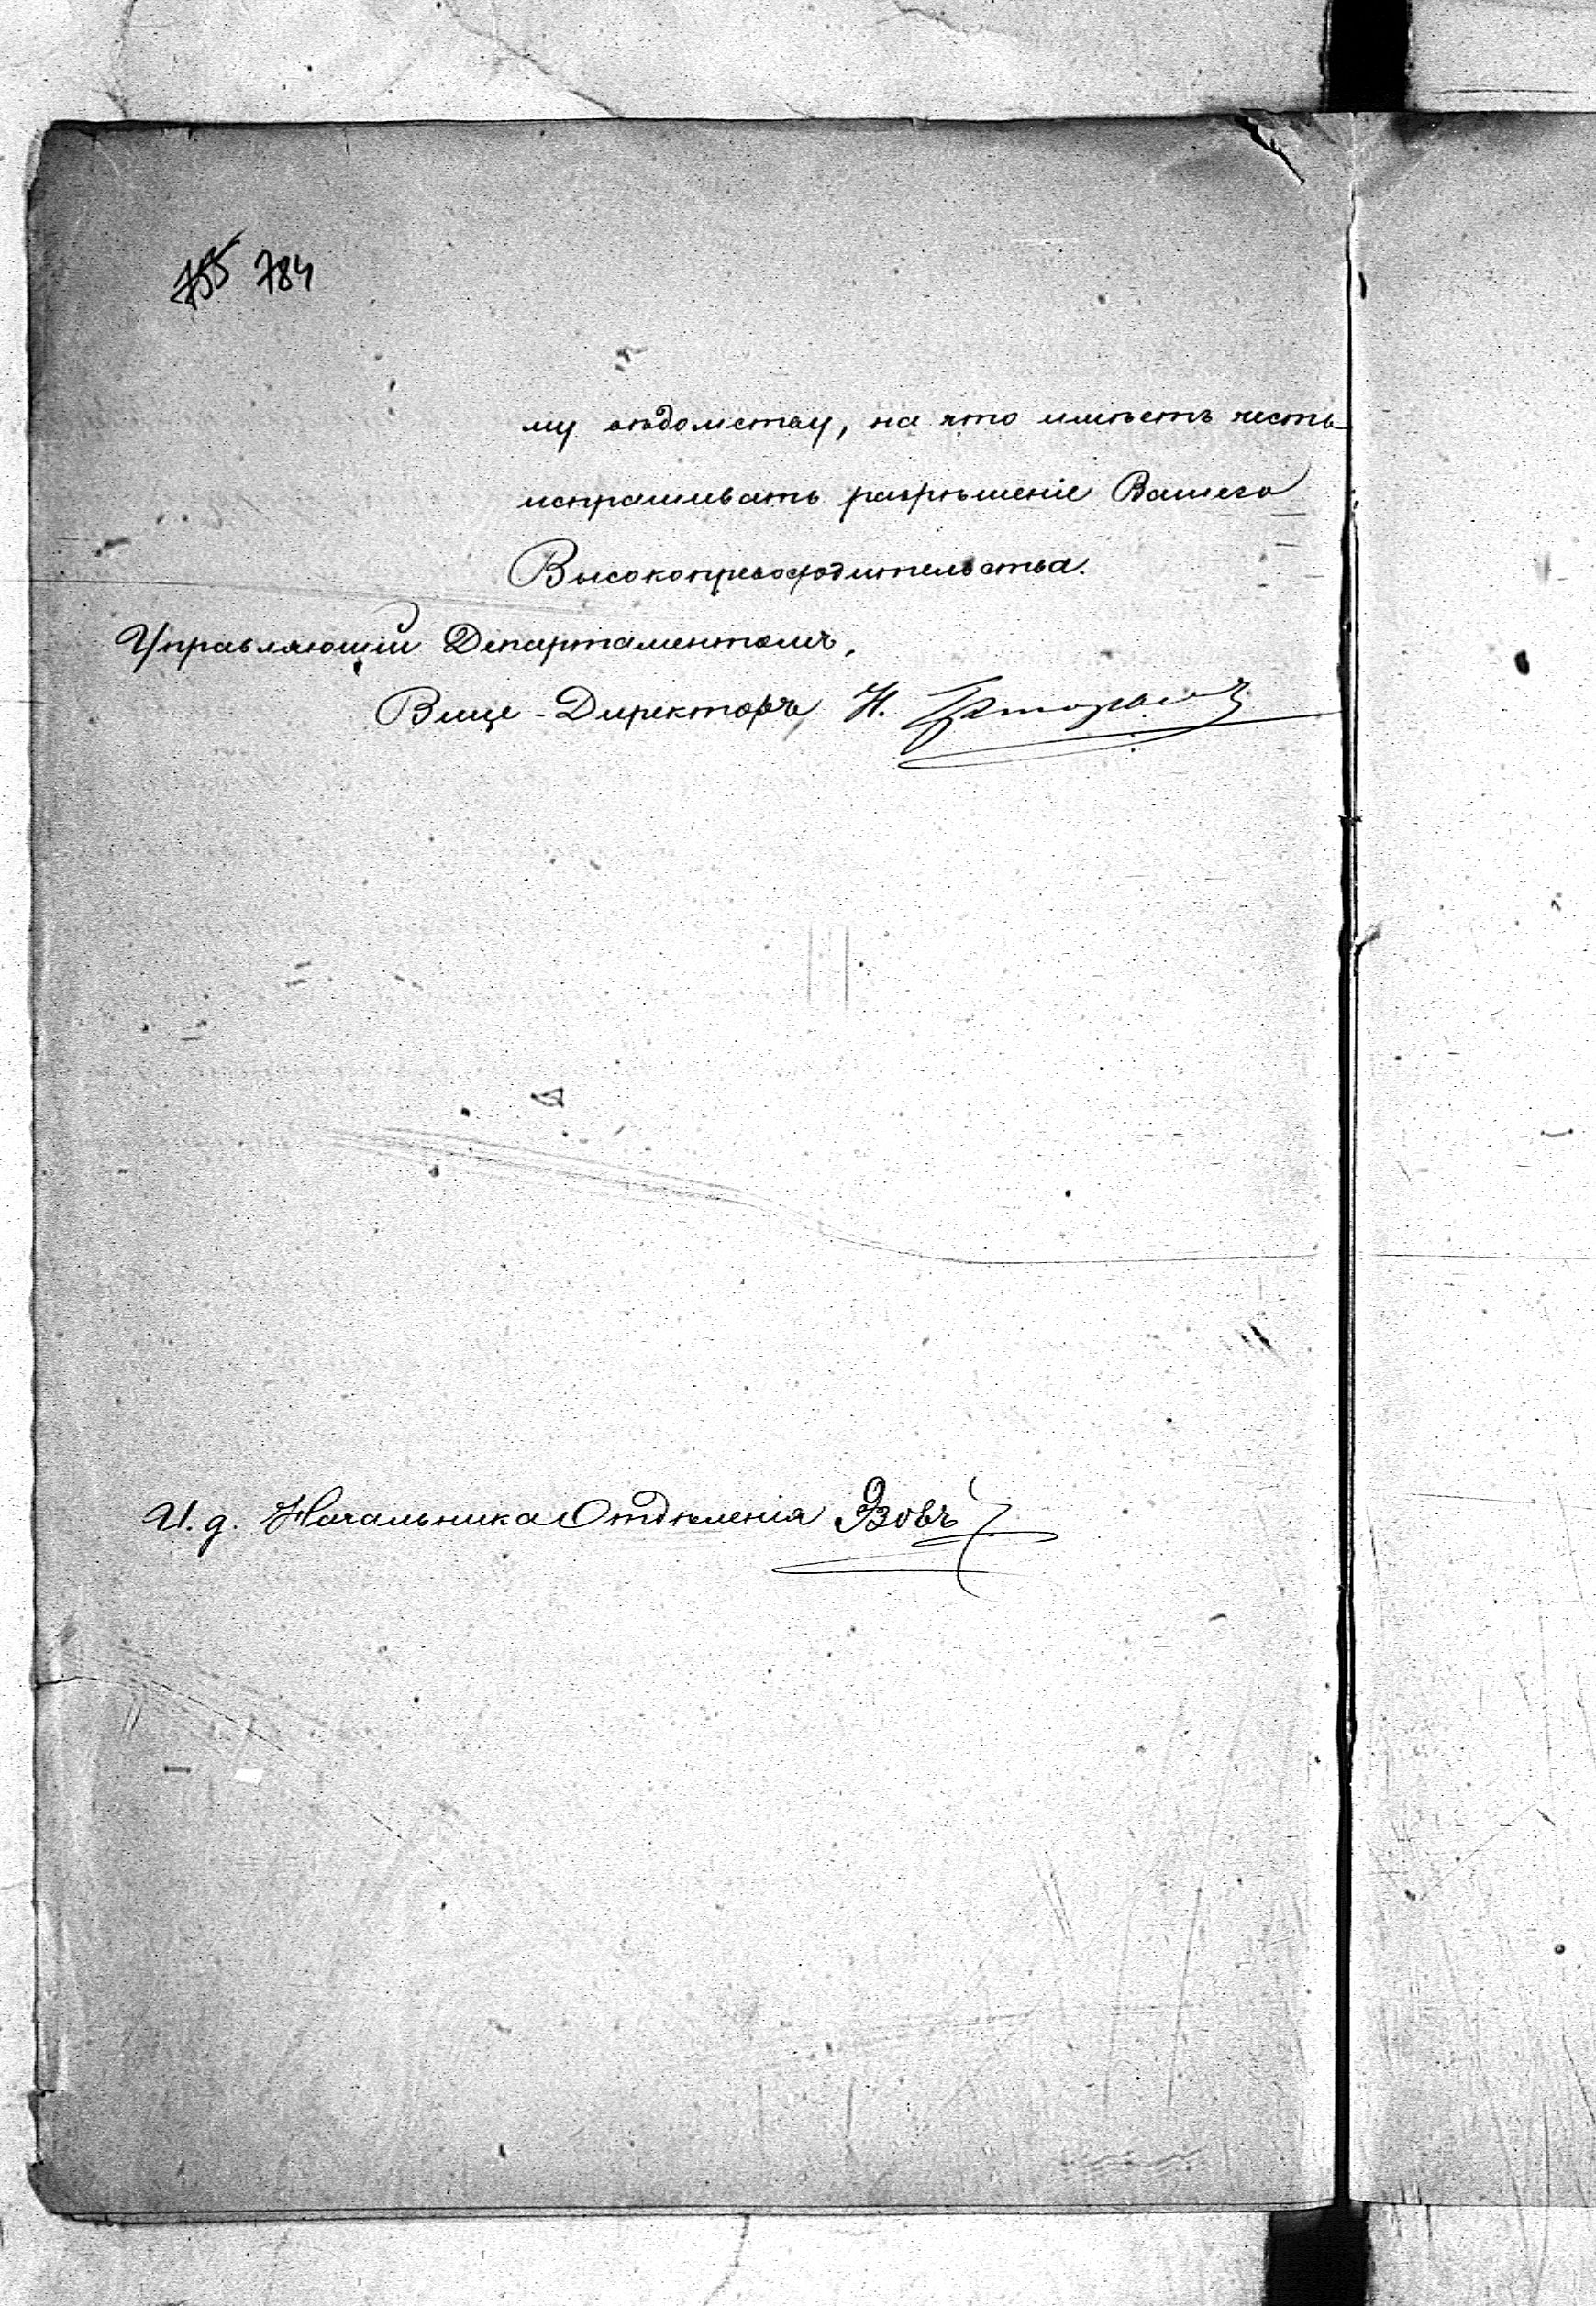 755 784
му вѣдомству, на что имѣетъ честь
испрашивать разрѣшеніе Вашего
Высокопревосходительства.
Управляющій Департаментомъ,
Вице-Директоръ, Н.
И. д. Начальника Отдѣленія Эзовъ